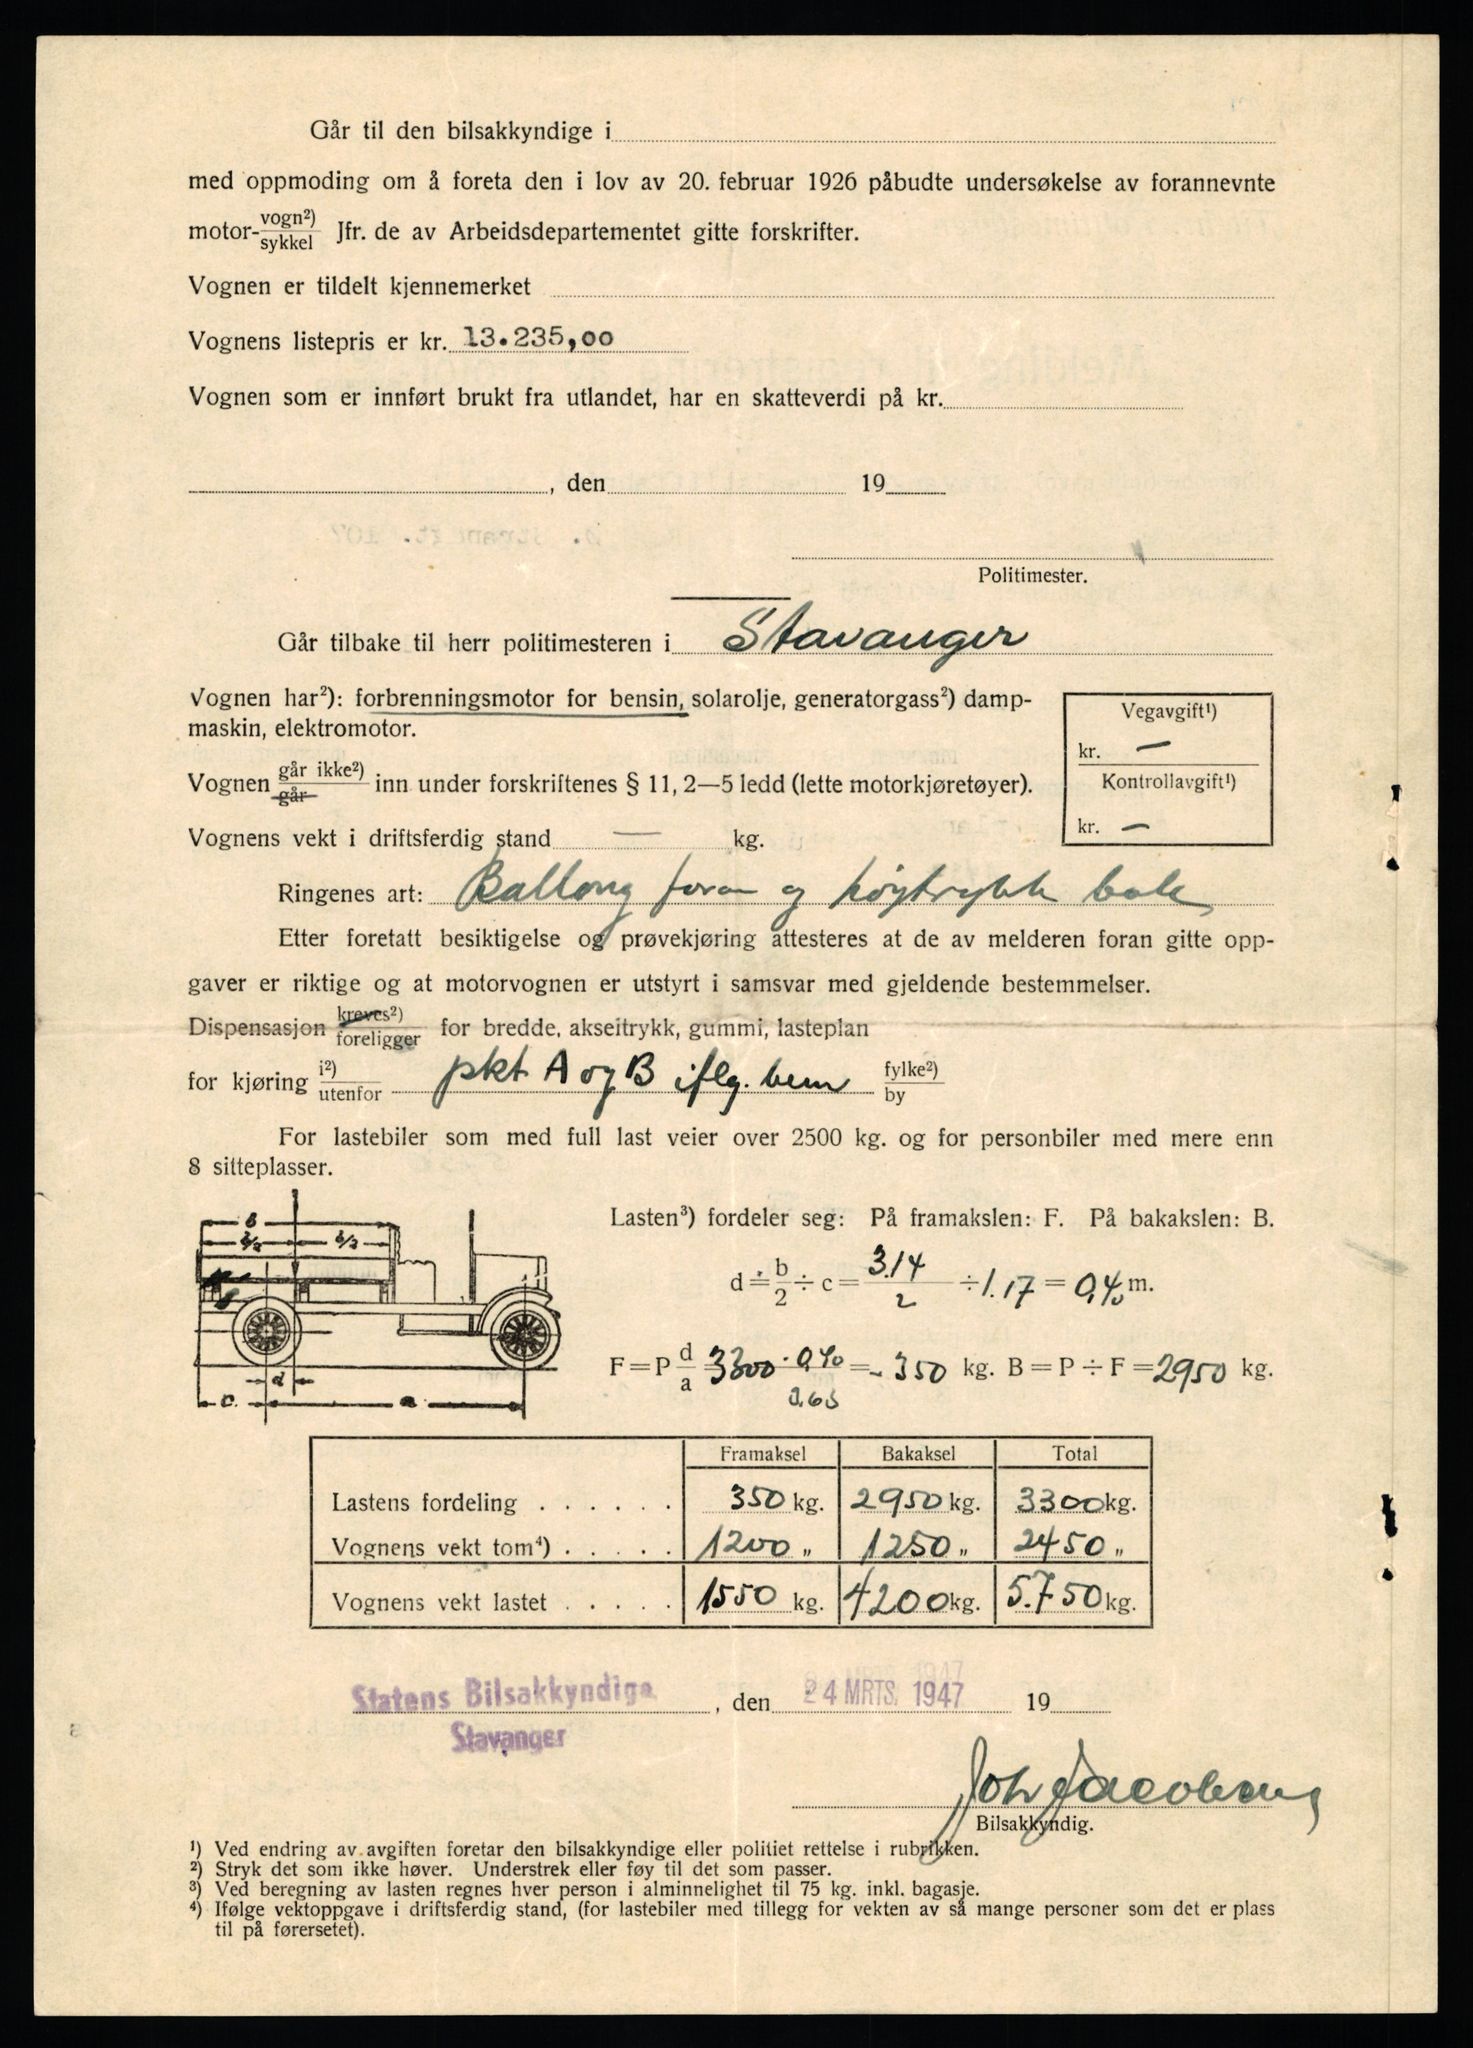 Går til den bilsakkyndige i
med oppmoding om å foreta den i lov av 20. februar 1926 påbudte undersøkelse av forannevnte
motor- vogn²) / sykkel Jfr. de av Arbeidsdepartementet gitte forskrifter.
Vognen er tildelt kjennemerket
Vognens listepris er kr. 13.235,00
Vognen som er innført brukt fra utlandet, har en skatteverdi på kr.
, den 19
Politimester.
Går tilbake til herr politimesteren i Stavanger
Vognen har²): forbrenningsmotor for bensin, solarolje, generatorgass²) damp-
maskin, elektromotor.
Vegavgift¹)
kr. —
Vognen går ikke²) / går inn under forskriftenes § 11, 2—5 ledd (lette motorkjøretøyer).
Kontrollavgift¹)
kr. —
Vognens vekt i driftsferdig stand — kg.
Ringenes art: Ballong foran og høytrykk bak
Etter foretatt besiktigelse og prøvekjøring attesteres at de av melderen foran gitte opp-
gaver er riktige og at motorvognen er utstyrt i samsvar med gjeldende bestemmelser.
Dispensasjon kreves²) / foreligger for bredde, akseltrykk, gummi, lasteplan
for kjøring i²) / utenfor pkt A og B iflg. bem fylke²) / by
For lastebiler som med full last veier over 2500 kg. og for personbiler med mere enn
8 sitteplasser.
b
b/2 b/2
d
c. a
Lasten³) fordeler seg: På framakslen: F. På bakakslen: B.
d = b/2 ÷ c = 3.14/2 ÷ 1.17 = 0,40 m.
F = P d/a 3300 · 0,40 / 3.63 = 350 kg. B = P ÷ F = 2950 kg.
Framaksel Bakaksel Total
Lastens fordeling . . . . . . 350 kg. 2950 kg. 3300 kg.
Vognens vekt tom⁴) . . . . . 1200 „ 1250 „ 2450 „
Vognens vekt lastet . . . . . 1550 kg. 4200 kg. 5.750 kg.
Statens Bilsakkyndige, den 24 MRTS. 1947 19
Stavanger
Joh Jacobsen
Bilsakkyndig.
¹) Ved endring av avgiften foretar den bilsakkyndige eller politiet rettelse i rubrikken.
²) Stryk det som ikke høver. Understrek eller føy til det som passer.
³) Ved beregning av lasten regnes hver person i alminnelighet til 75 kg. inkl. bagasje.
⁴) Ifølge vektoppgave i driftsferdig stand, (for lastebiler med tillegg for vekten av så mange personer som det er plass
til på førersetet).